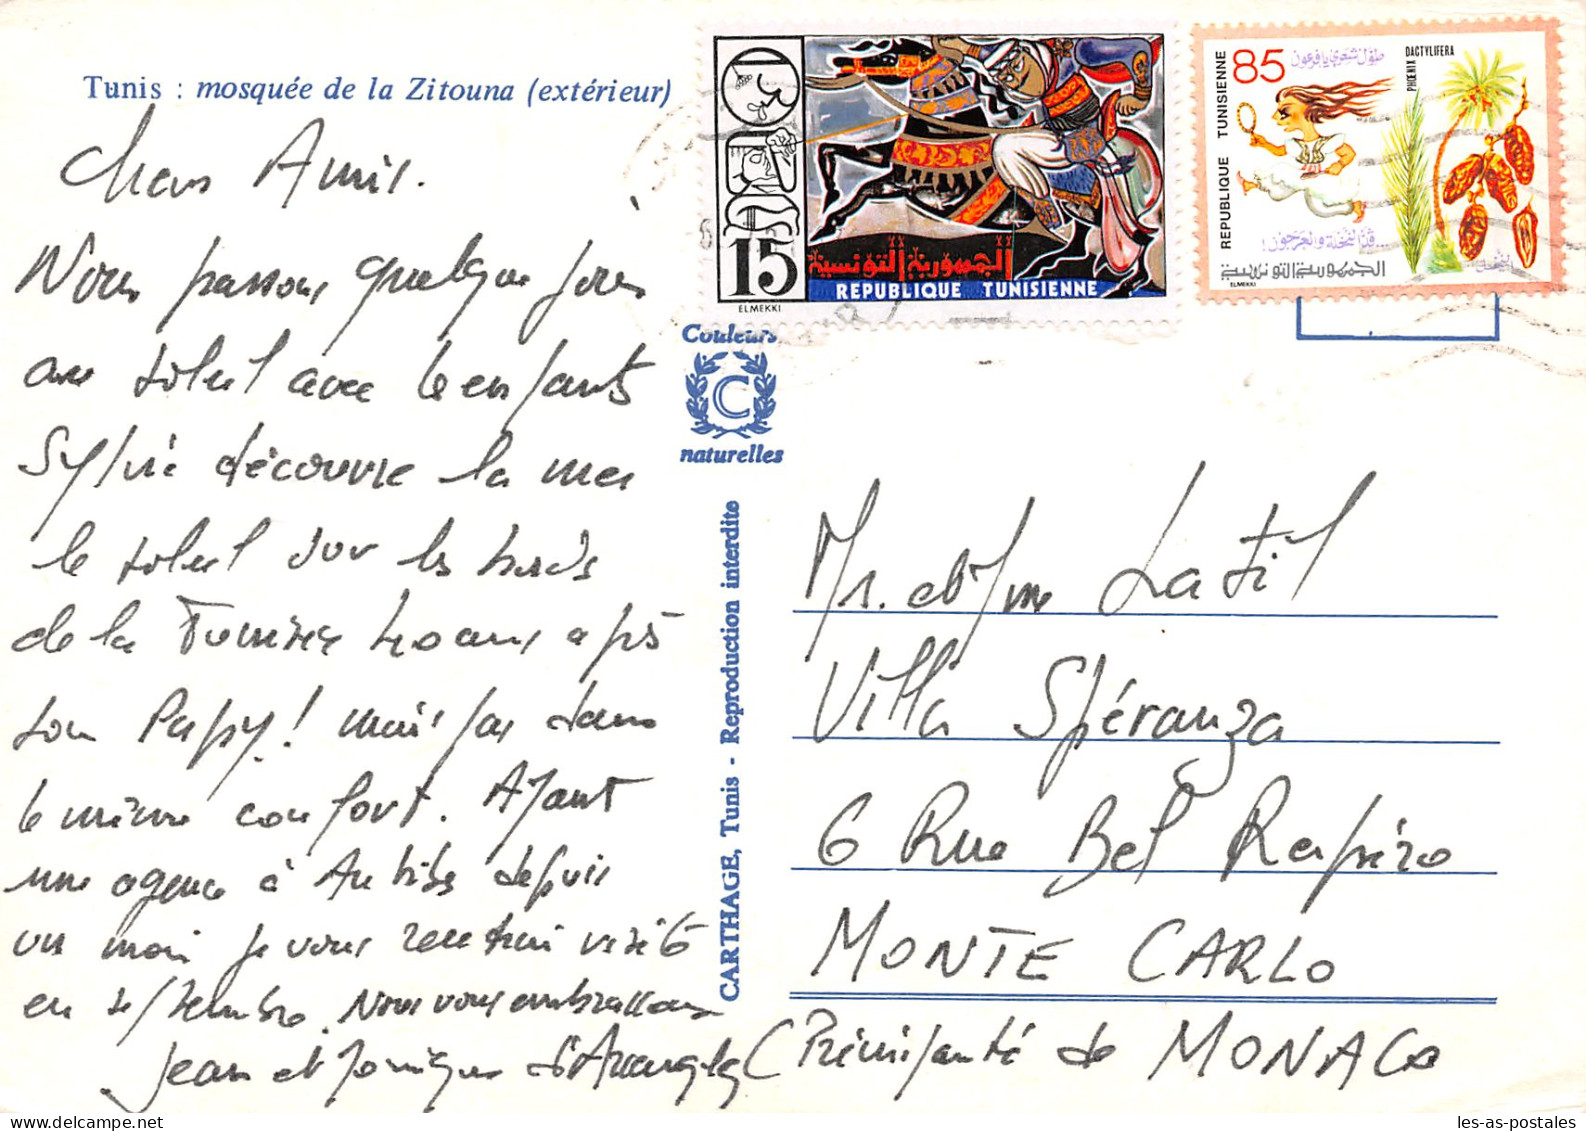 Tunis : mosquée de la Zitouna (extérieur)
Chers Amis.
Nous passons quelque jours
au soleil avec les enfants
Sylvie découvre la mer
le soleil sur les bords
de la Tunisie 20 ans après
son Papy ! mais pas dans
le même confort. Ayant
une agence à Antibes depuis
un mois je vous rendrai visite
en septembre. Nous vous embrassons
Jean et Monique
15
ELMEKKI
الجمهورية التونسية
REPUBLIQUE TUNISIENNE
REPUBLIQUE TUNISIENNE
85
طول شعري يا فرعون
PHOENIX DACTYLIFERA
...قد النخلة والعرجون !
النخيل
الجمهورية التونسية
ELMEKKI
Couleurs
C
naturelles
CARTHAGE, Tunis - Reproduction interdite
Mr. et Mme Latil
Villa Spéranza
6 Rue Bel Respiro
MONTE CARLO
(Principauté de MONACO
les-as-postales